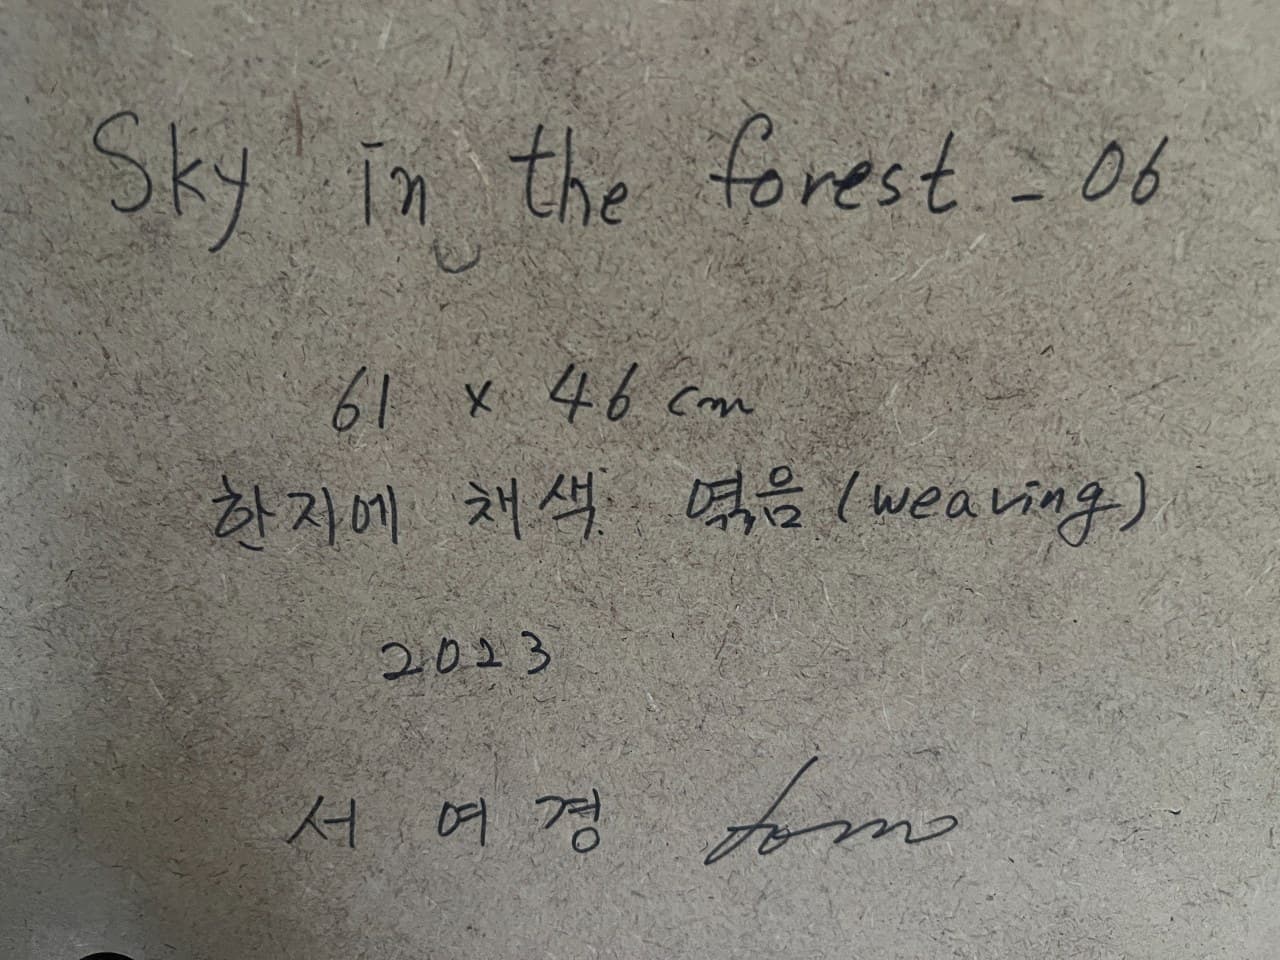 Sky in the forest - 06
61 x 46 cm
한지에 채색 엮음 (weaving)
2023
서 여 경